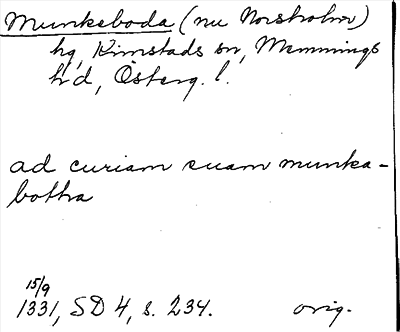 Munkeboda (nu Norsholm)
hg, Kimstads sn, Memmings
hd, Österg. l.
ad curiam suam munka-
botha
15/9
1331, SD 4, s. 234. orig.